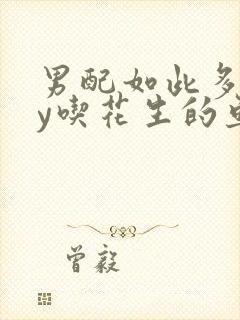 男配如此多
y喫花生的
曾毅